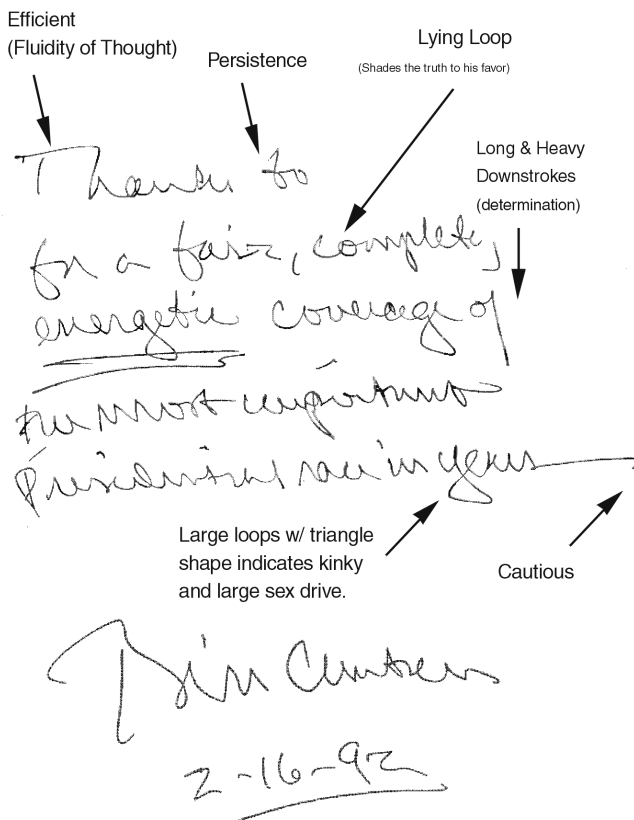 Efficient
(Fluidity of Thought)
Persistence
Lying Loop
(Shades the truth to his favor)
Long & Heavy
Downstrokes
(determination)
Thanks to
for a fair, complete,
energetic coverage of
the most important
Presidential race in years
Large loops w/ triangle
shape indicates kinky
and large sex drive.
Cautious
Bill Clinton
2-16-92